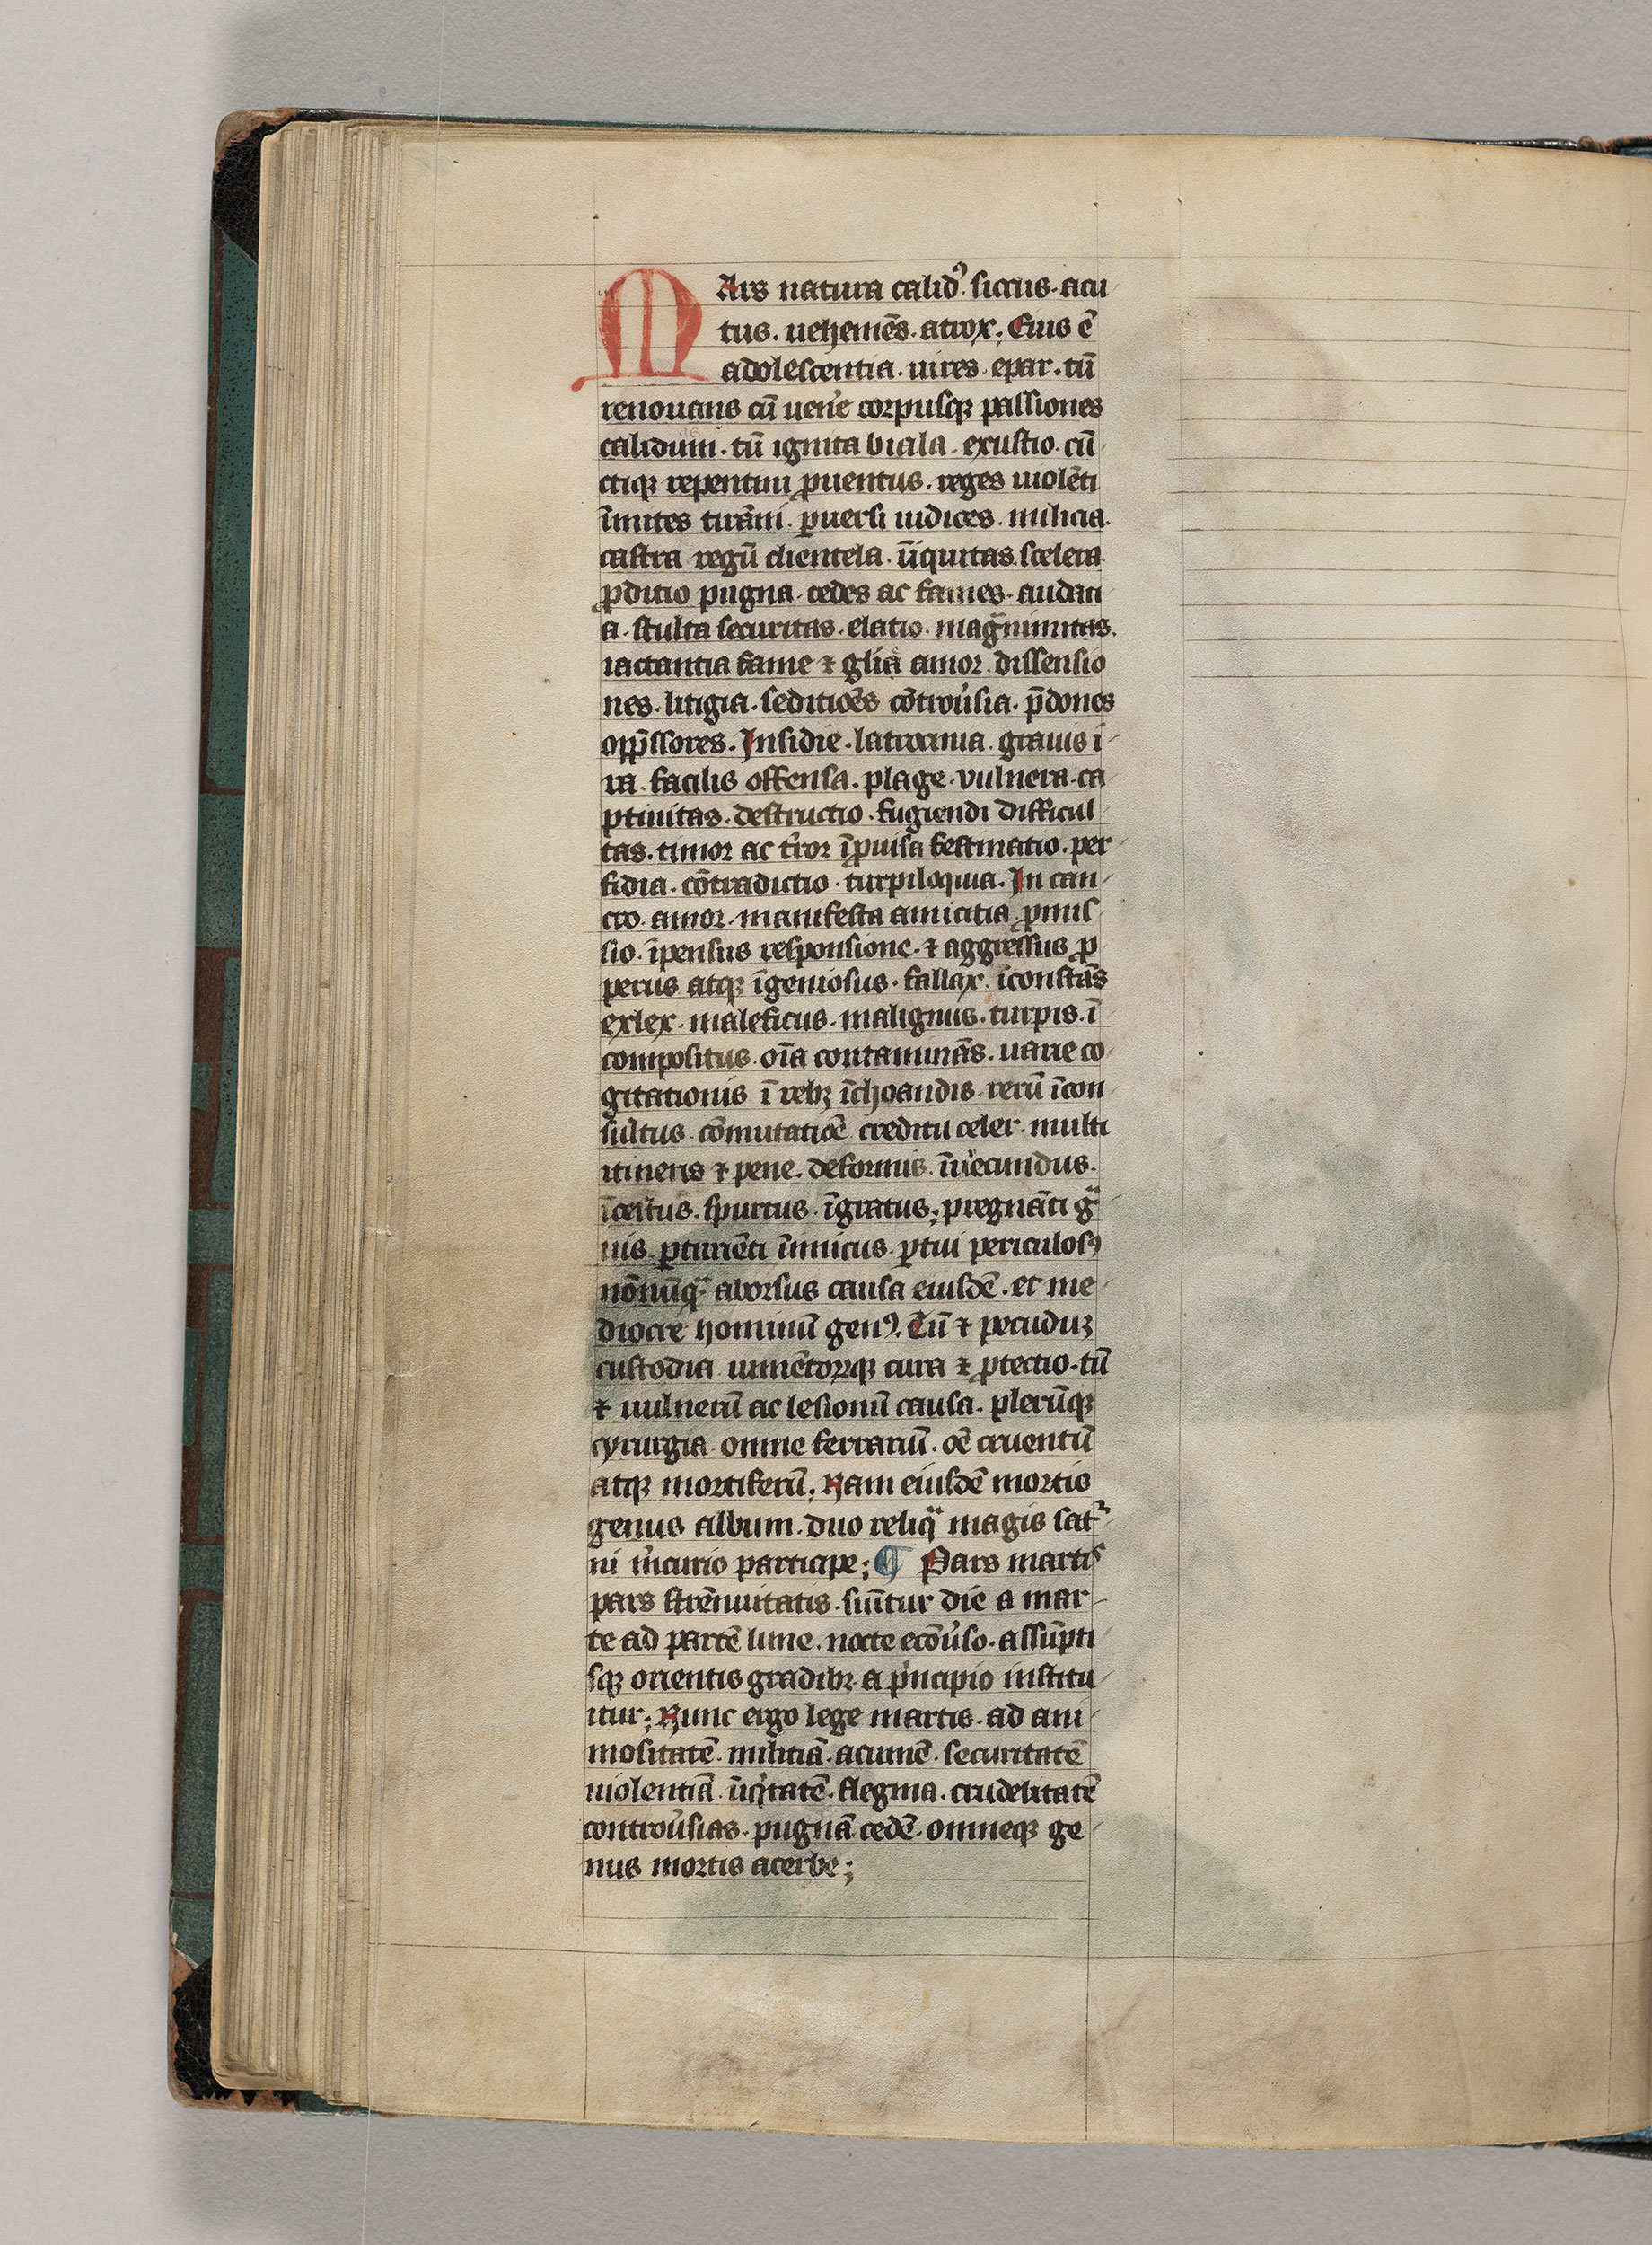 MArs natura calidꝰ. siccus. acu
tus. uehemēs. atrox; Eius ē
adolescentia. uires. epar. tū
renouans cū uen͛e corpusqꝫ passiones
calidum. tū ignita biala. exustio. cū
ctiqꝫ repentini ꝓuentus. reges uiolēti
īmites tirāni. ꝑuersi iudices. milicia.
castra regū clientela. īiquitas. scelera
ꝓditio pugna. cedes ac fames. audati
a. stulta securitas. elatio. magͣnimitas.
iactantia fame ⁊ gl̄ia amor. dissensio
nes. litigia. seditiōes cōtrou͛sia. p̄dones
opp̄ssores. Insidie. latrocinia. grauis i
ra. facilis offensa. plage. vulnera. ca
ptiuitas. destructio. fugiendi difficul
tas. timor ac t͛ror īꝓuisa festinatio. per
fidia. cōtradictio. turpiloquia. In can
cro. amor. manifesta amicitia ꝓmis
sio. īpensus responsione. ⁊ aggressus ꝓ
perus atqꝫ īgeniosus. fallax. īconstās
exlex. maleficus. malignus. turpis. ī
compositus. oīa contaminās. uarie co
gitationis ī rebꝫ īchoandis. rerū īcon
sultus. cōmutatiōe creditu celer. multi
itineris ⁊ pene. deformis. īu͛ecundus.
īcestus. spurcus. īgratus; pregnāti gͣ
uis. ꝑturiēti īimicus. ꝑtui periculosꝰ
nōnūqͣ aborsus causa eiusdē. et me
diocre hominū genꝰ. Tū ⁊ pecuduꝫ
custodia iumētorꝫqꝫ cura ⁊ ꝓtectio. tū
⁊ uulnerū ac lesionū causa. plerūqꝫ
cyrurgia omne ferrariū. oē cruentū
atqꝫ mortiferū; Nam eiusdē mortis
genus album. duo reliqͣ magis satͬ
ni m͛curio participe; ¶ Pars martis
pars strēnuitatis. sum̄tur die a mar
te ad partē lune. nocte ecōu͛so. assūpti
sqꝫ orientis gradibꝫ a pͥncipio institu
itur; Nunc ergo lege martis. ad ani
mositatē. militiā. acumē. securitatē
uiolentiā. īiqͥtatē. flegma. crudelitatē
controu͛sias. pugnā. cedē. omneqꝫ ge
nus mortis acerbe;